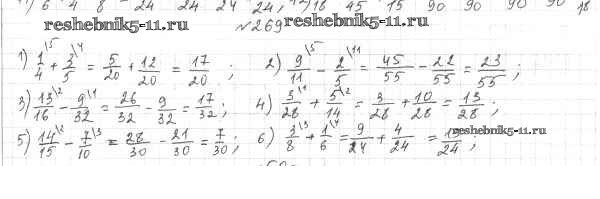 6 4 8 24 24 24 24 ; 12) 18 45 15 90 90 90 90 18
reshebnik5-11.ru №269 reshebnik5-11.ru
1) 1/4 \5 + 3/5 \4 = 5/20 + 12/20 = 17/20 ; 2) 9/11 \5 - 2/5 \11 = 45/55 - 22/55 = 23/55 ;
3) 13/16 \2 - 9/32 \1 = 26/32 - 9/32 = 17/32 ; 4) 3/28 \1 + 5/14 \2 = 3/28 + 10/28 = 13/28 ;
5) 14/15 \2 - 7/10 \3 = 28/30 - 21/30 = 7/30 ; 6) 3/8 \3 + 1/6 \4 = 9/24 + 4/24 = 13/24 ;
reshebnik5-11.ru